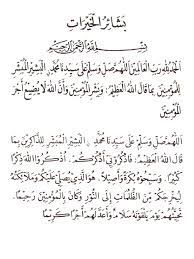 بشائر الخيرات
بسم الله الرحمن الرحيم
الحمد لله رب العالمين اللهم صل وسلم على سيدنا محمد البشير المبشر
للمؤمنين بما قال الله العظيم وبشر المؤمنين وأن الله لا يضيع أجر
المؤمنين
اللهم صل وسلم على سيدنا محمد البشير المبشر للذاكرين بما
قال الله العظيم فاذكروني أذكركم اذكروا الله ذكرا
كثيرا وسبحوه بكرة وأصيلا هو الذي يصلي عليكم وملائكته
ليخرجكم من الظلمات إلى النور وكان بالمؤمنين رحيما
تحيتهم يوم يلقونه سلام وأعد لهم أجرا كريما